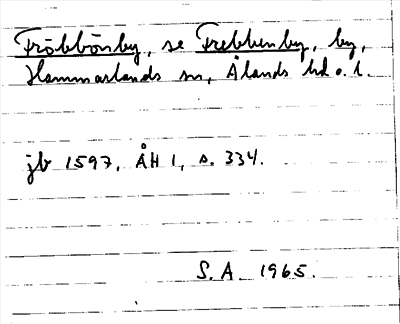 Fröbbönby, se Frebbenby, by,
Hammarlands sn, Ålands hd o. l.
jb 1597, ÅH 1, s. 334.
S. A. 1965.